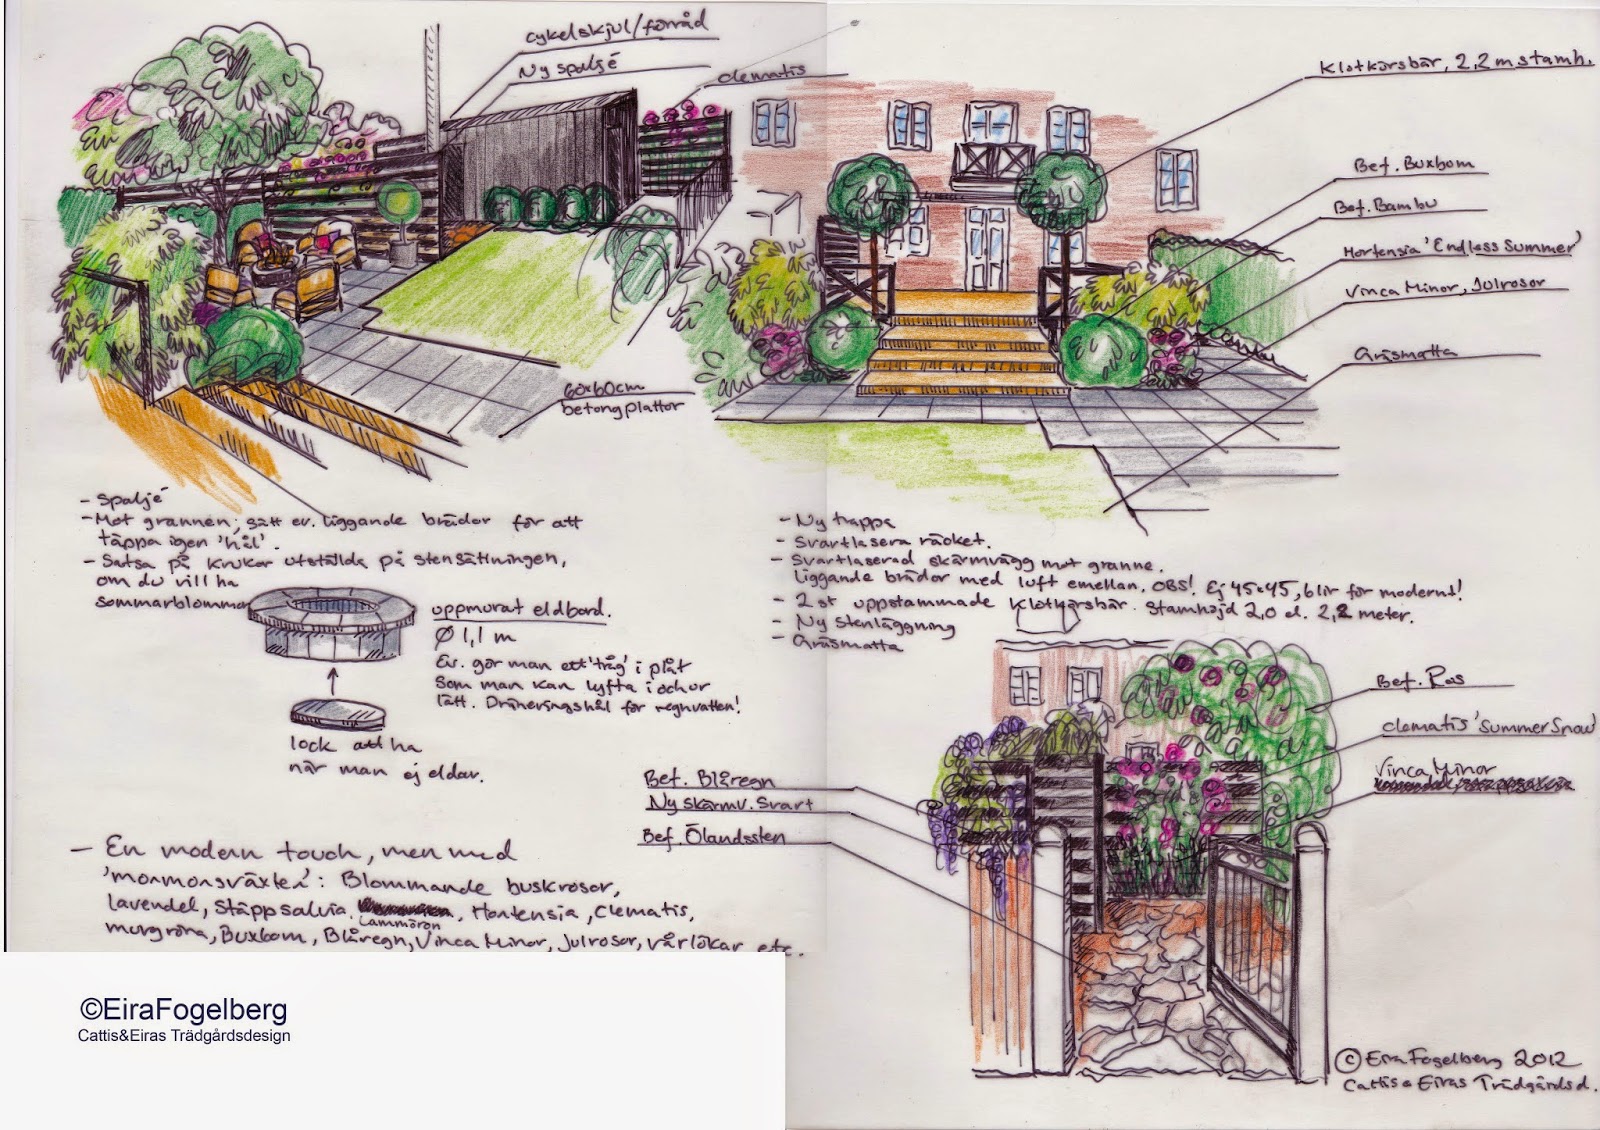 cykelskjul/förråd
Ny spaljé
clematis
60x60cm
betongplattor
Klotkörsbär, 2,2m stamh.
Bef. Buxbom
Bef. Bambu
Hortensia 'Endless Summer'
Vinca Minor, Julrosor
Gräsmatta
- Spaljé
- Mot grannen; sätt ev. liggande brädor för att
täppa igen 'hål'.
- Satsa på krukor utställda på stensättningen,
om du vill ha
sommarblommor
uppmurat eldbord.
Ø 1,1 m
Ev. gör man ett 'tråg' i plåt
som man kan lyfta i och ur
lätt. Dräneringshål för regnvatten!
lock att ha
när man ej eldar.
- Ny trappa
- Svartlasera räcket.
- Svartlaserad skärmvägg mot granne.
liggande brädor med luft emellan. OBS! Ej 45x45, blir för modernt!
- 2 st uppstammade Klotkörsbär. Stamhöjd 2,0 el. 2,2 meter.
- Ny stenläggning
- Gräsmatta
Bef. Ros
clematis 'Summer Snow'
Vinca Minor
Bef. Blåregn
Ny skärmv. Svart
Bef. Ölandssten
- En modern touch, men med
'mormorsväxter': Blommande buskrosor,
lavendel, stäppsalvia, Lammöron, Hortensia, Clematis,
murgröna, Buxbom, Blåregn, Vinca Minor, Julrosor, vårlökar etc.
©EiraFogelberg
Cattis&Eiras Trädgårdsdesign
© Eira Fogelberg 2012
Cattis & Eiras Trädgårdsd.